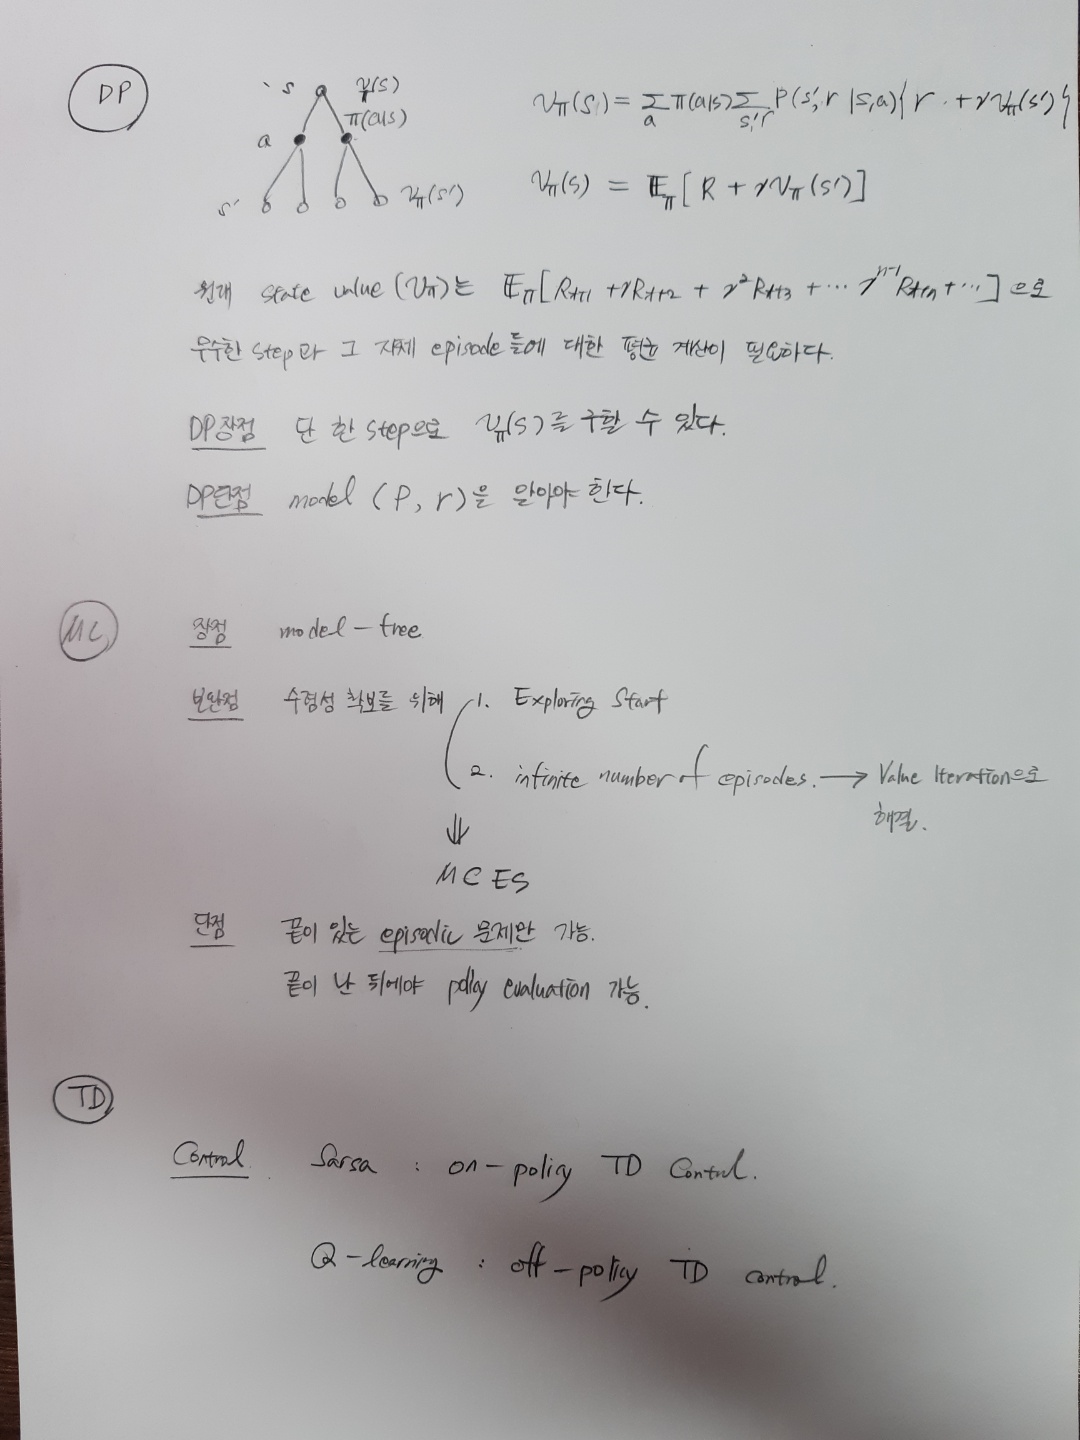 DP
s v_π(s)
π(a|s)
a
s' v_π(s')
v_π(s) = Σ_a π(a|s) Σ_{s',r} P(s',r |s,a){ r + γ v_π(s') }
v_π(s) = 𝔼_π [ R + γ v_π(s') ]
원래 state value (v_π)는 𝔼_π [ R_{t+1} + γR_{t+2} + γ²R_{t+3} + ⋯ γ^{n-1} R_{t+n} + ⋯ ] 으로
무수한 step과 그 자체 episode들에 대한 평균 계산이 필요하다.
DP장점 단 한 step으로 v_π(s)를 구할 수 있다.
DP단점 model (P, r)을 알아야 한다.
MC
장점 model-free
보완점 수렴성 확보를 위해 1. Exploring Start
2. infinite number of episodes. → Value Iteration으로
해결.
⇓
MC ES
단점 끝이 있는 episodic 문제만 가능.
끝이 난 뒤에야 policy evaluation 가능.
TD
Control Sarsa : on-policy TD Control.
Q-learning : off-policy TD control.